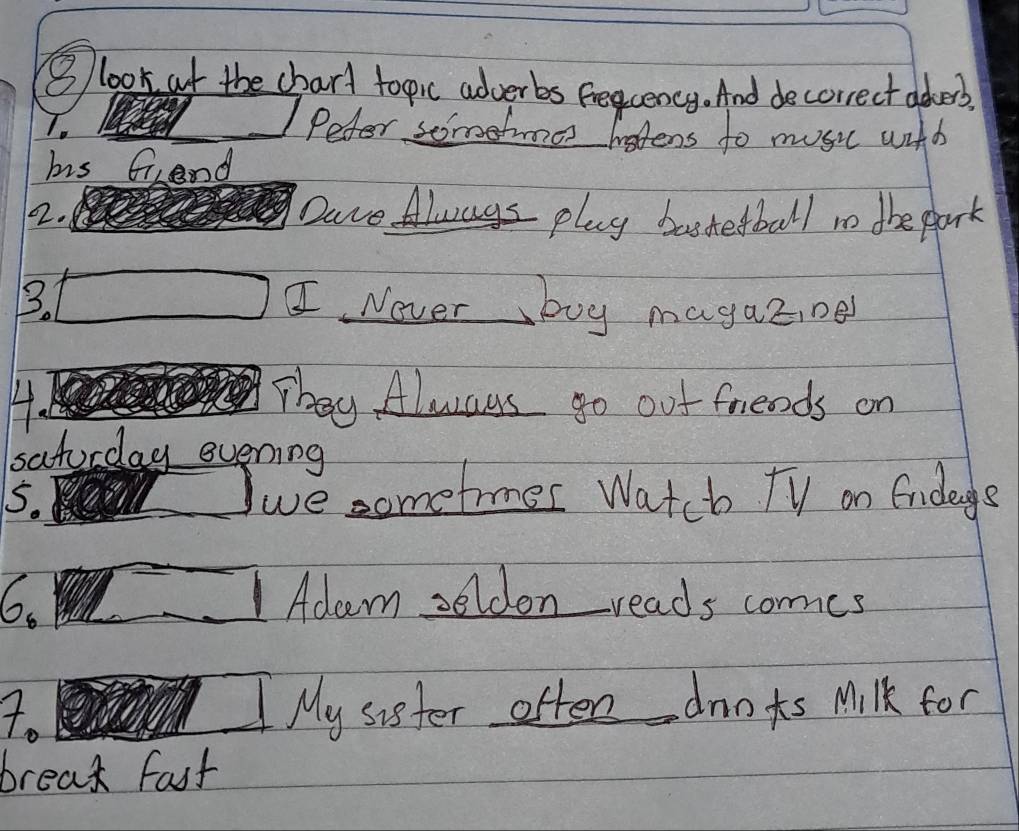 8) look at the chart topic adverbs frequency. And de correct adverb.
1. Peter sometimes listens to music with
his friend
2. Dave Always play basketball in the park
3. I Never buy magazines
4. They Always go out friends on
saturday evening
5. we sometimes Watch TV on fridays
6. Adam seldon reads comics
7. My sister often drinks Milk for
break fast